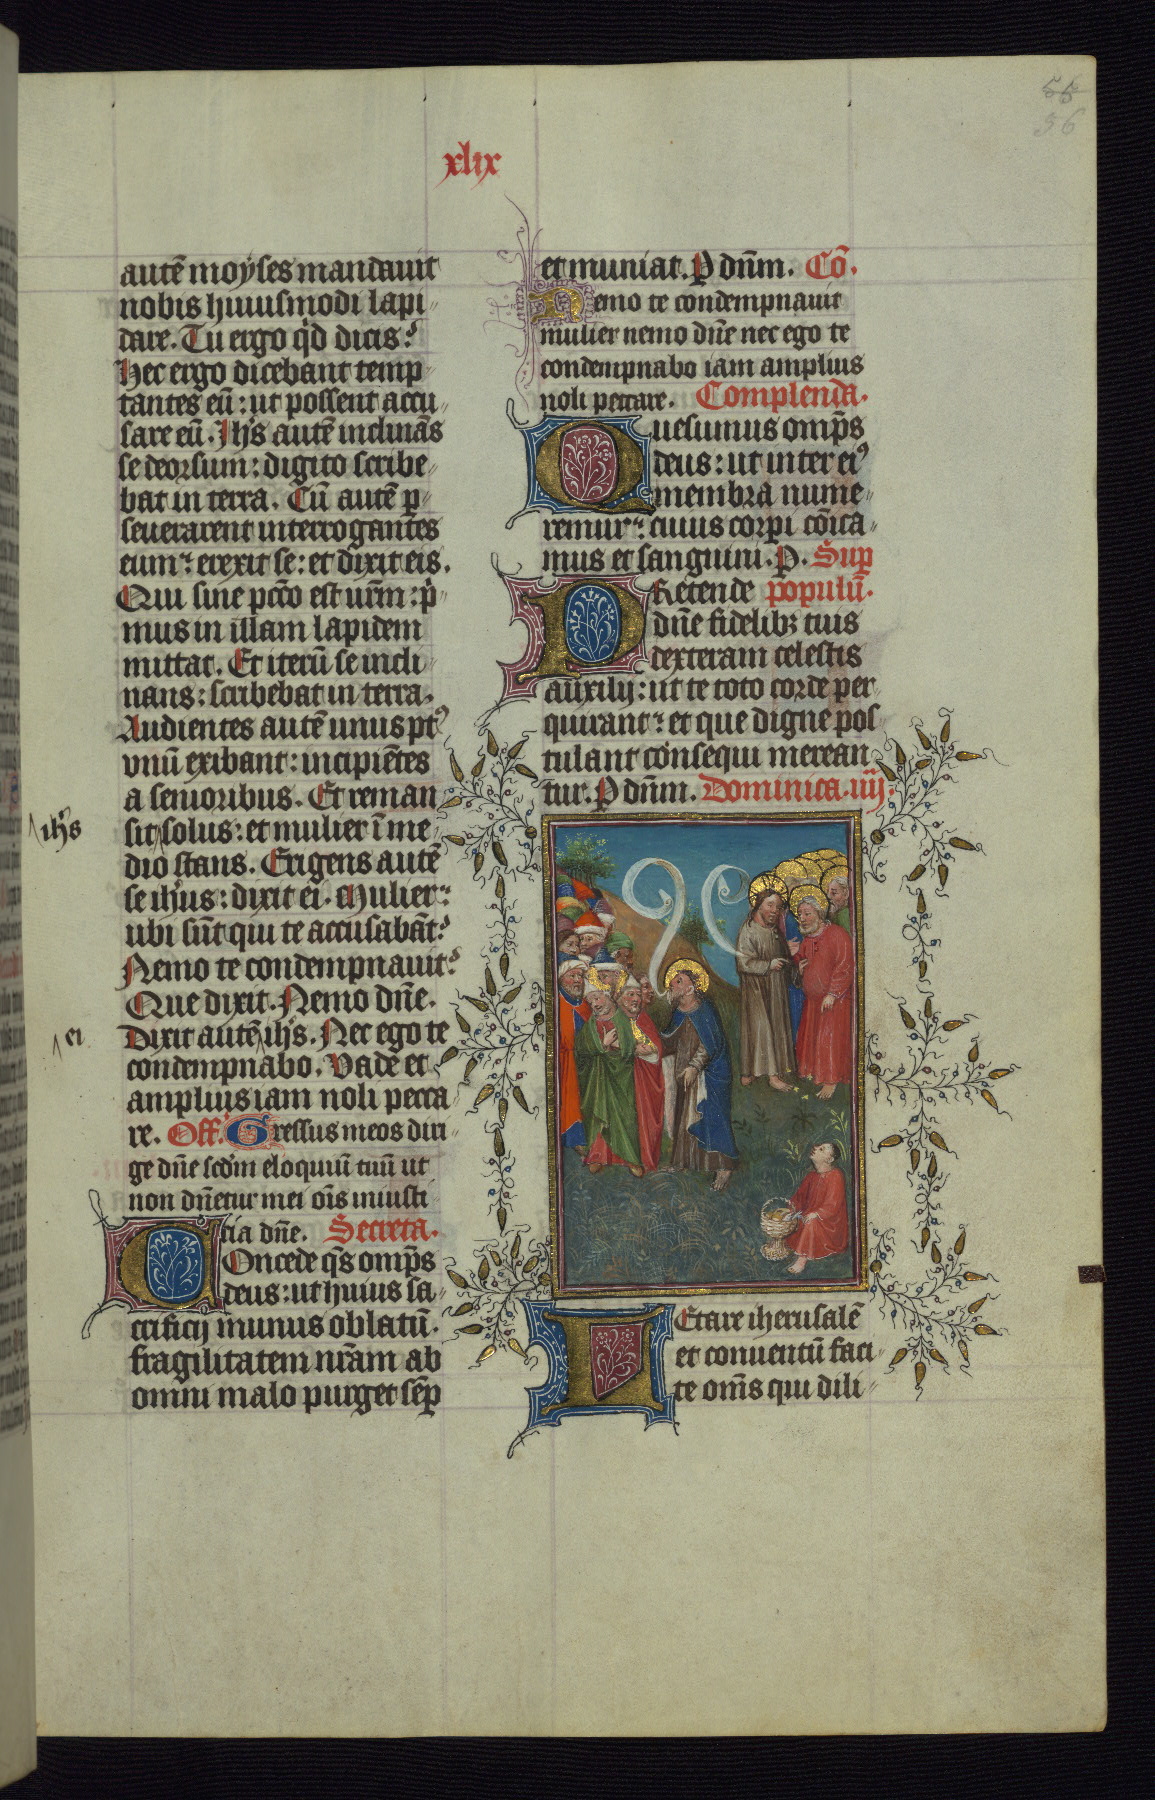 55
56
xlix
autē moyses mandauit
nobis huiusmodi lapi
dare. Tu ergo qͥd dicis?
Hec ergo dicebant temp
tantes eū: ut possent accu
sare eū. Ihs autē inclinās
se deorsum: digito scribe
bat in terra. Cū autē ꝑ
seuerarent interrogantes
eum: erexit se: et dixit eis.
Qui sine pctō est urm̄: pͥ
mus in illam lapidem
mittat. Et iterū se incli
nans: scribebat in terra.
Audientes autē unus pꝰt
vnū exibant: incipiētes
a senioribus. Et reman
ihs
sit solus: et mulier ī me
dio stans. Erigens autē
se ihūs: dixit ei. Mulier:
ubi sūt qui te accusabāt?
Nemo te condempnauit?
Que dixit. Nemo dn̄e.
ei
Dixit autē ihs. Nec ego te
condempnabo. Vade et
amplius iam noli pecca
re. Off. Gressus meos diri
ge dn̄e scd̄m eloquiū tuū ut
non dn̄etur mei oīs iniusti
tia dn̄e. Secreta.
Concede qs̄ omp̄s
deus: ut huius sa
crificij munus oblatū.
fragilitatem nr̄am ab
omni malo purget sēp
et muniat. P dnm̄. Cō.
Nemo te condempnauit
mulier nemo dn̄e nec ego te
condempnabo iam amplius
noli peccare. Complenda.
Quesumus omp̄s
deus: ut inter eiꝰ
membra nume
remur: cuius corpi cōica
mus et sanguini. P. Sup
PRetende populū.
dn̄e fidelibꝫ tuis
dexteram celestis
auxilij: ut te toto corde per
quirant: et que digne pos
tulant consequi merean
tur. P dnm̄. Dominica. iiij.
LEtare iherusalē
et conuentū faci
te om̄s qui dili